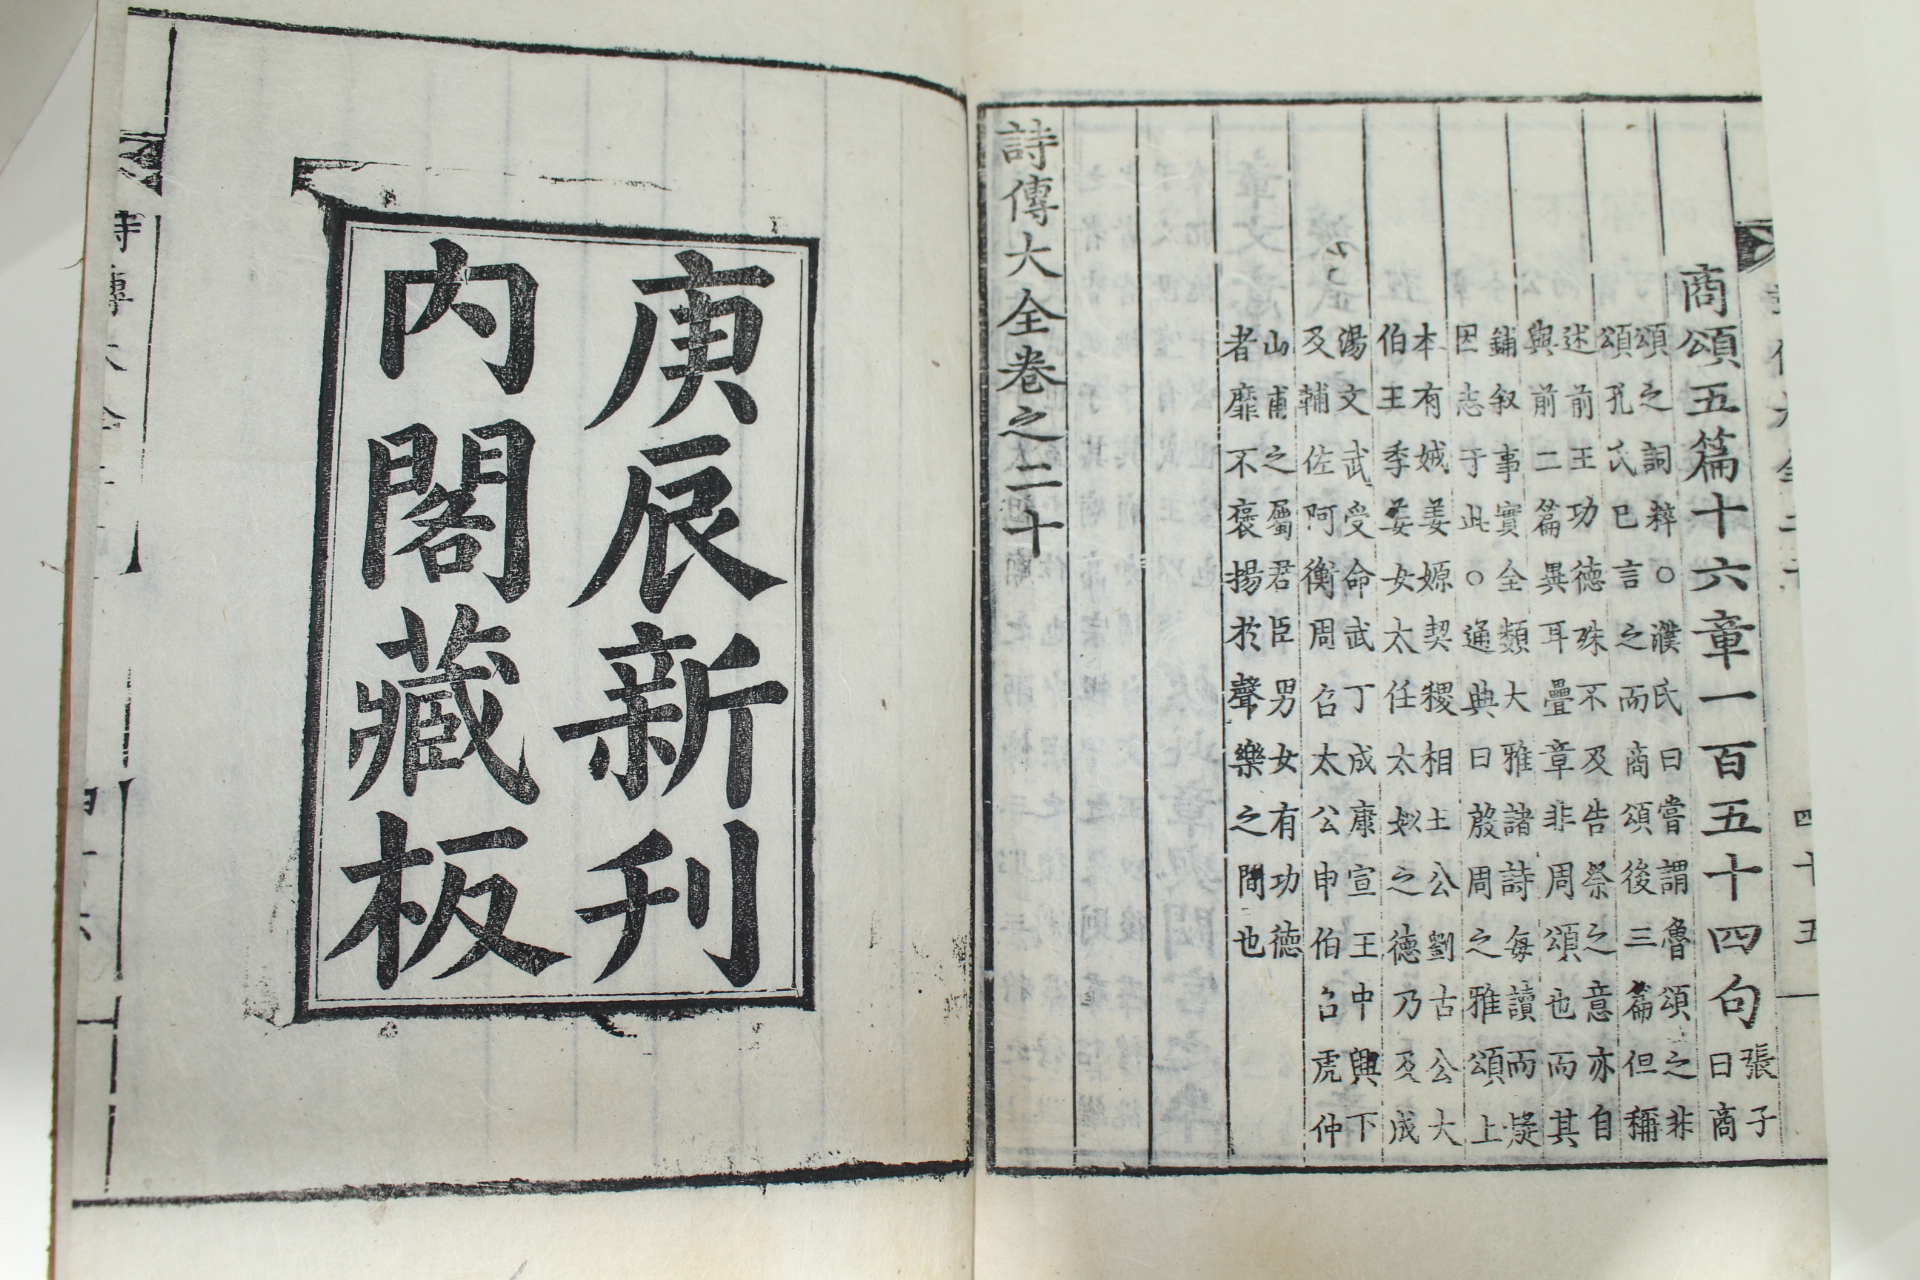 四十五
商頌五篇十六章一百五十四句
張子
曰商
頌之詞粹○濮氏曰嘗謂魯頌之非
頌孔氏已言之而商頌後三篇但稱
述前王功德殊不及告祭之意亦自
與前二篇異耳疊章非周頌也而其
鋪叙事實全類大雅諸詩每讀而疑
因志于此○通典曰殷周之雅頌上
本有娀姜嫄契稷相土公劉古公大
伯王季姜女太任太姒之德乃及成
湯文武受命武丁成康宣王中興下
及輔佐阿衡周召太公申伯召虎仲
山甫之屬君臣男女有功德
者靡不褒揚於聲樂之間也
詩傳大全卷之二十
庚辰新刊
内閣藏板